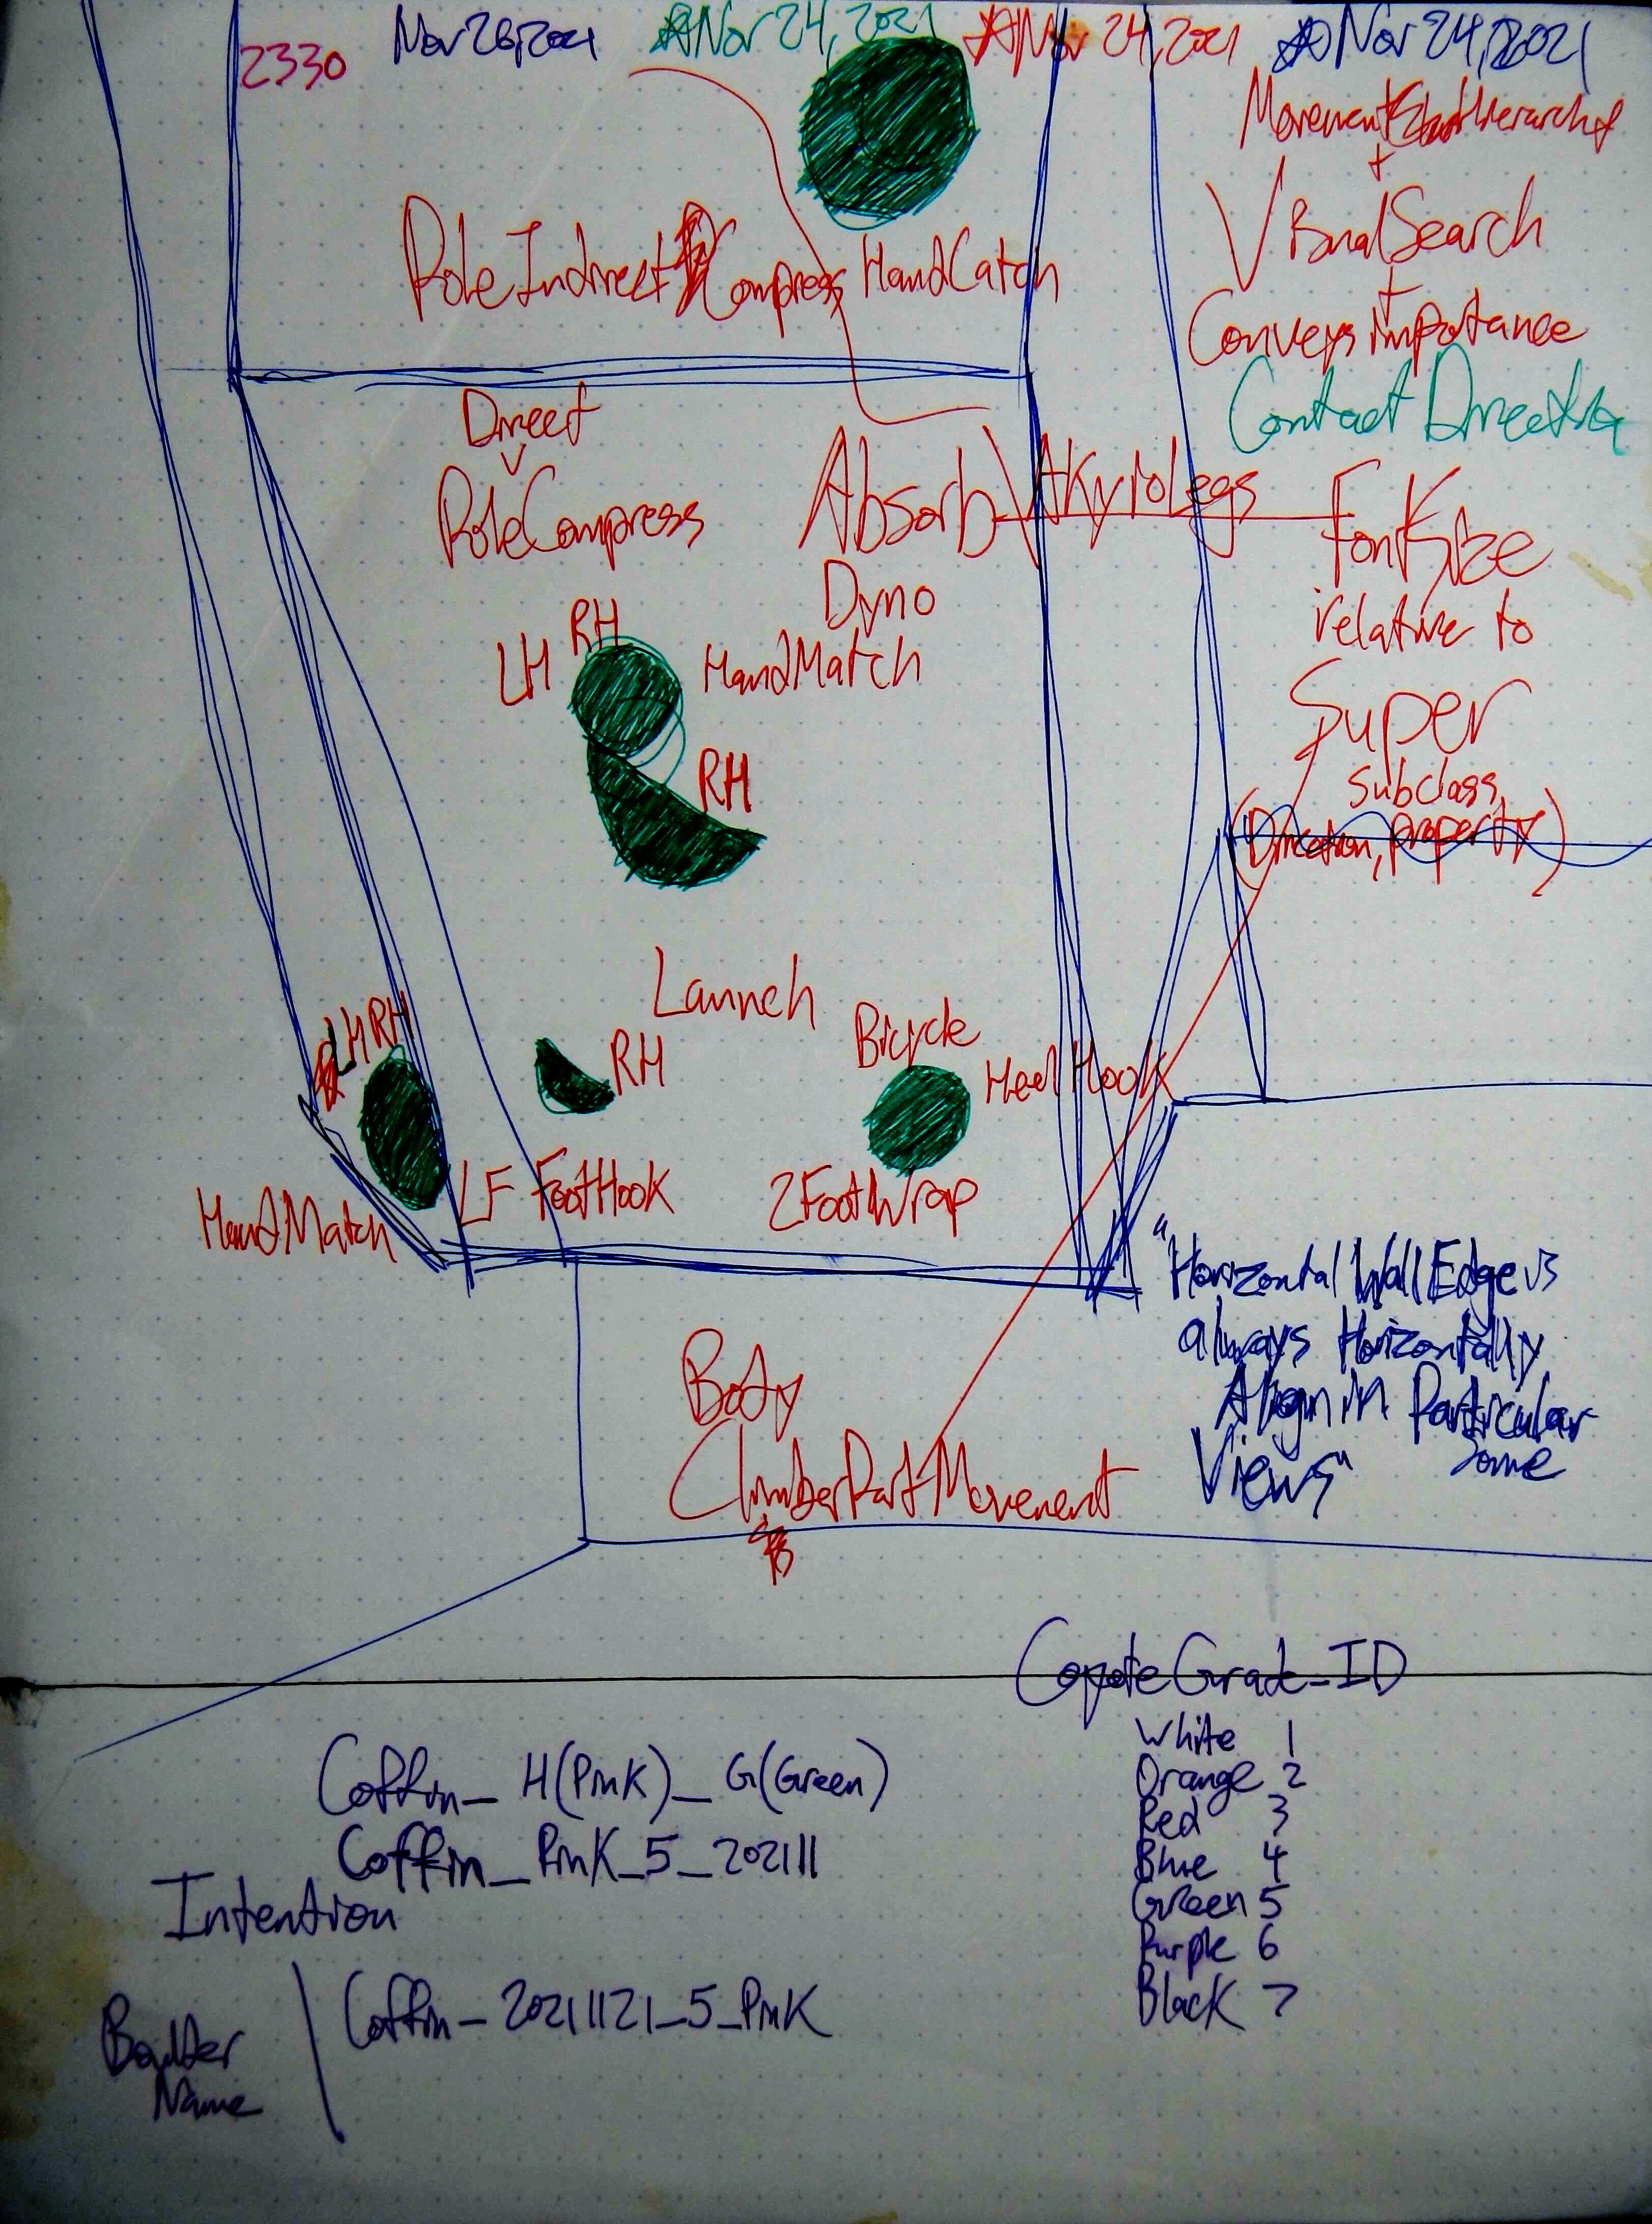 2330 Nov 26, 2021 Nov 24, 2021 Nov 24, 2021 Nov 24, 2021
Movement Hierarchy
+
Visual Search
+
Conveys importance
Contact Direction
RoleIndirect Compress HandCatch
Direct
RoleCompress
Absorb ValkyrioLegs
Dyno
Font Size
relative to
Super
subclass
(Direction, property)
LH RH HandMatch
RH
Launch
LH RH
RH
Bicycle
Heel Hook
HandMatch
LF FootHook
2FootWrap
"Horizontal Wall Edge vs
always Horizontally
Align in Particular
Views" Some
Body
ClimberPartMovement
CoyoteGrade_ID
White 1
Orange 2
Red 3
Blue 4
Green 5
Purple 6
Black 7
Coffin_H(Pink)_G(Green)
Coffin_Pink_5_202111
Intention
Boulder
Name
Coffin_20211121_5_Pink